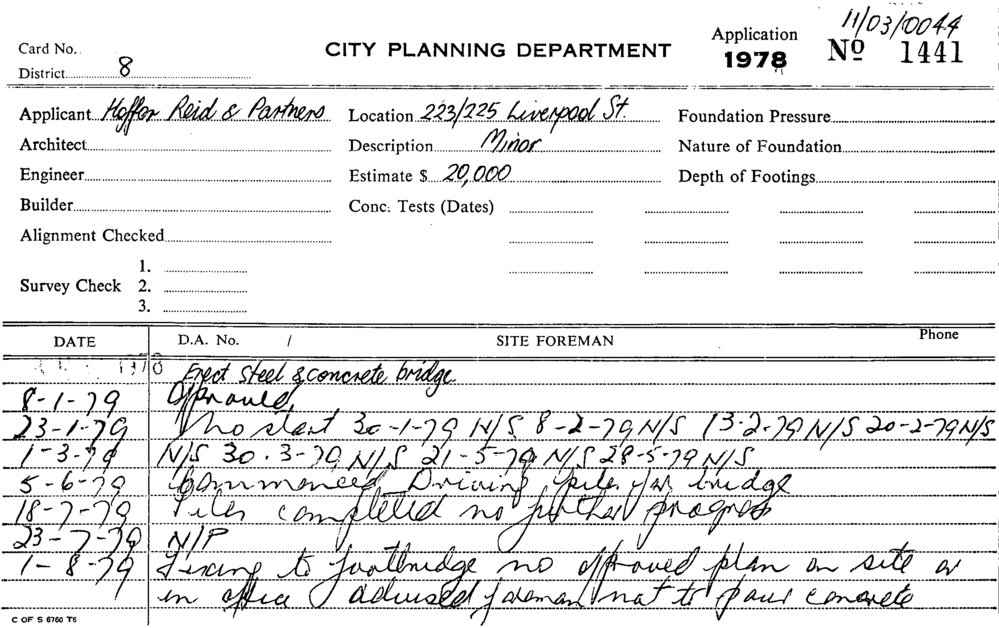 11/03/0044
Card No.
CITY PLANNING DEPARTMENT
Application
1978
No 1441
District 8
Applicant Hoffer Reid & Partners
Location 223/225 Liverpool St.
Foundation Pressure
Architect
Description Minor
Nature of Foundation
Engineer
Estimate $ 20,000
Depth of Footings
Builder
Conc. Tests (Dates)
Alignment Checked
Survey Check
1.
2.
3.
DATE
D.A. No. /
SITE FOREMAN
Phone
1978 Erect steel & concrete bridge
8-1-79 Approved
23-1-79 No start 30-1-79 N/S 8-2-79 N/S 13-2-79 N/S 20-2-79 N/S
1-3-79 N/S 30.3-79 N/S 21-5-79 N/S 28-5-79 N/S
5-6-79 Commenced Driving piles for bridge
18-7-79 Piles completed no further progress
23-7-79 N/P
1-8-79 to footbridge no approved plan on site or
in office advised foreman not to pour concrete
C OF S 6760 T6